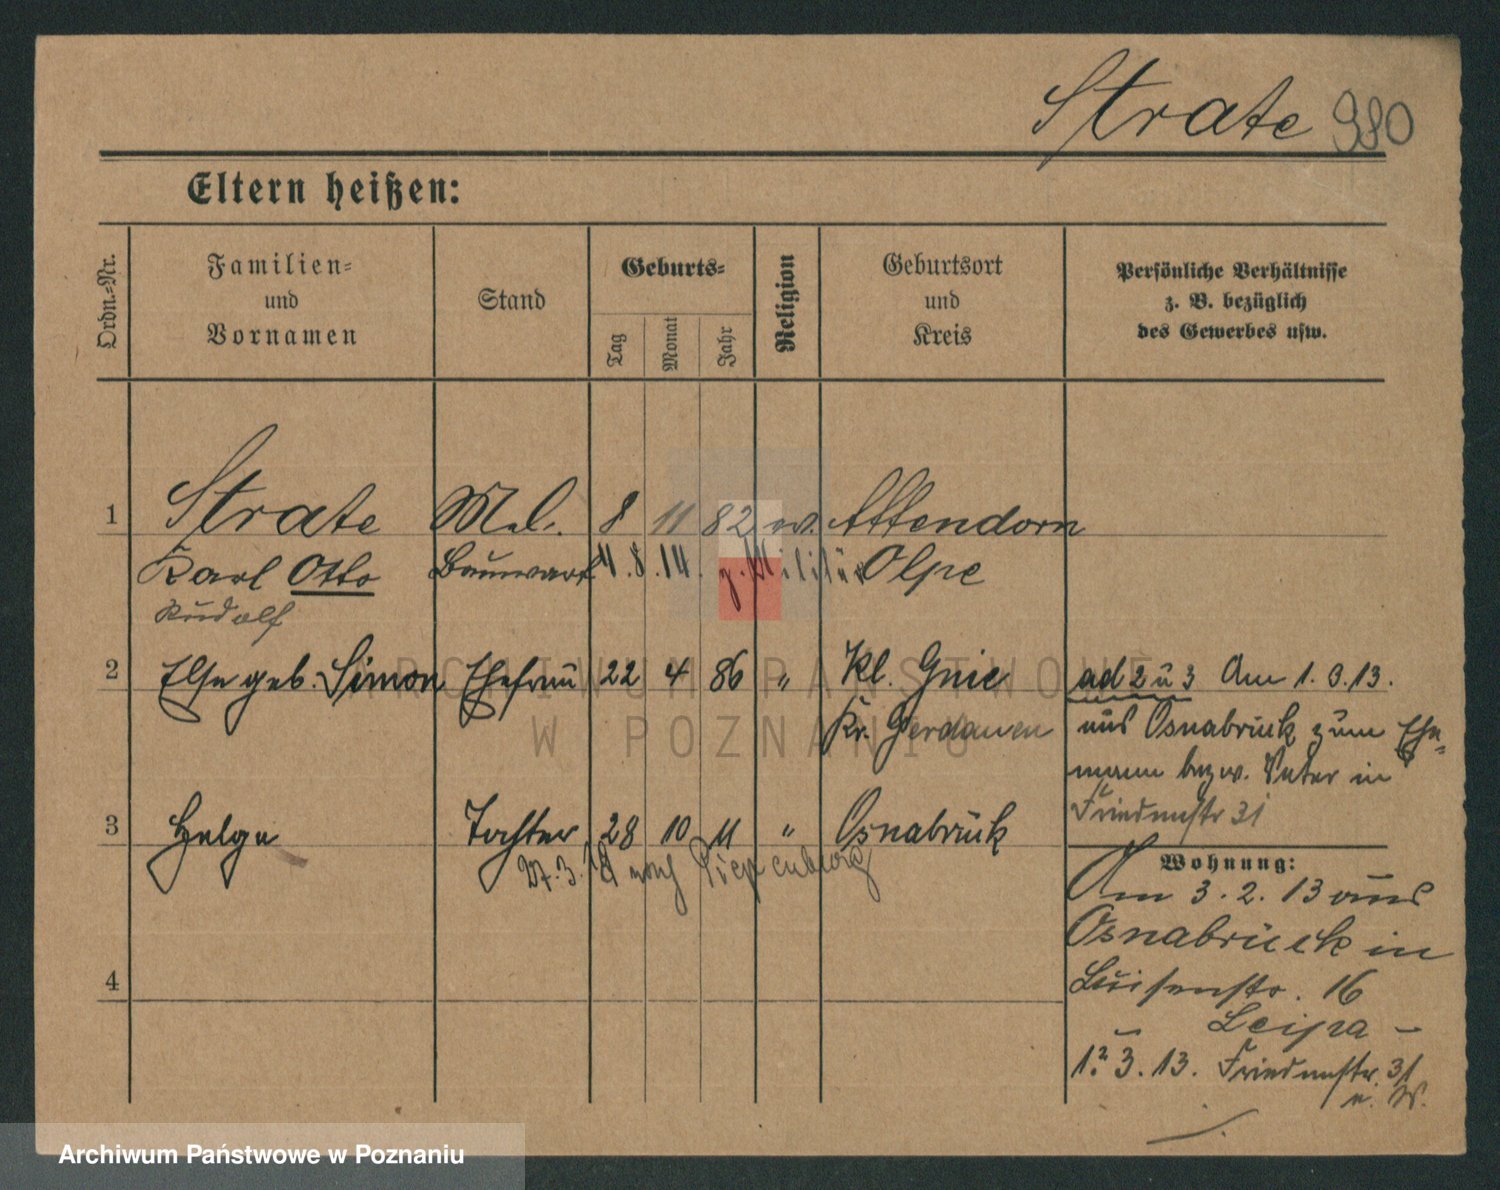 Strate 980
Eltern heißen:
Ordn.-Nr.
Familien-
und
Vornamen
Stand
Geburts-
Tag
Monat
Jahr
Religion
Geburtsort
und
Kreis
Persönliche Verhältnisse
z. B. bezüglich
des Gewerbes usw.
1 Strate 8 11 82 ev. Attendorn
Karl Otto Bauwart 4.8.14. z. Militär Olpe
Rudolf
2 Else geb. Simon Ehefrau 22 4 86 " Kl. Gnie
Kr. Gerdauen
ad 2 u 3 Am 1. 3. 13.
aus Osnabrück zum Ehe-
mann bezw. Vater in
Friedenstr 31
3 Helga Tochter 28 10 11 " Osnabrück
27.3. nach
4
Wohnung:
Am 3. 2. 13 aus
Osnabrück in
Luisenstr. 16
1. 3. 13. Friedenstr. 31
ARCHIWUM PAŃSTWOWE
W POZNANIU
Archiwum Państwowe w Poznaniu